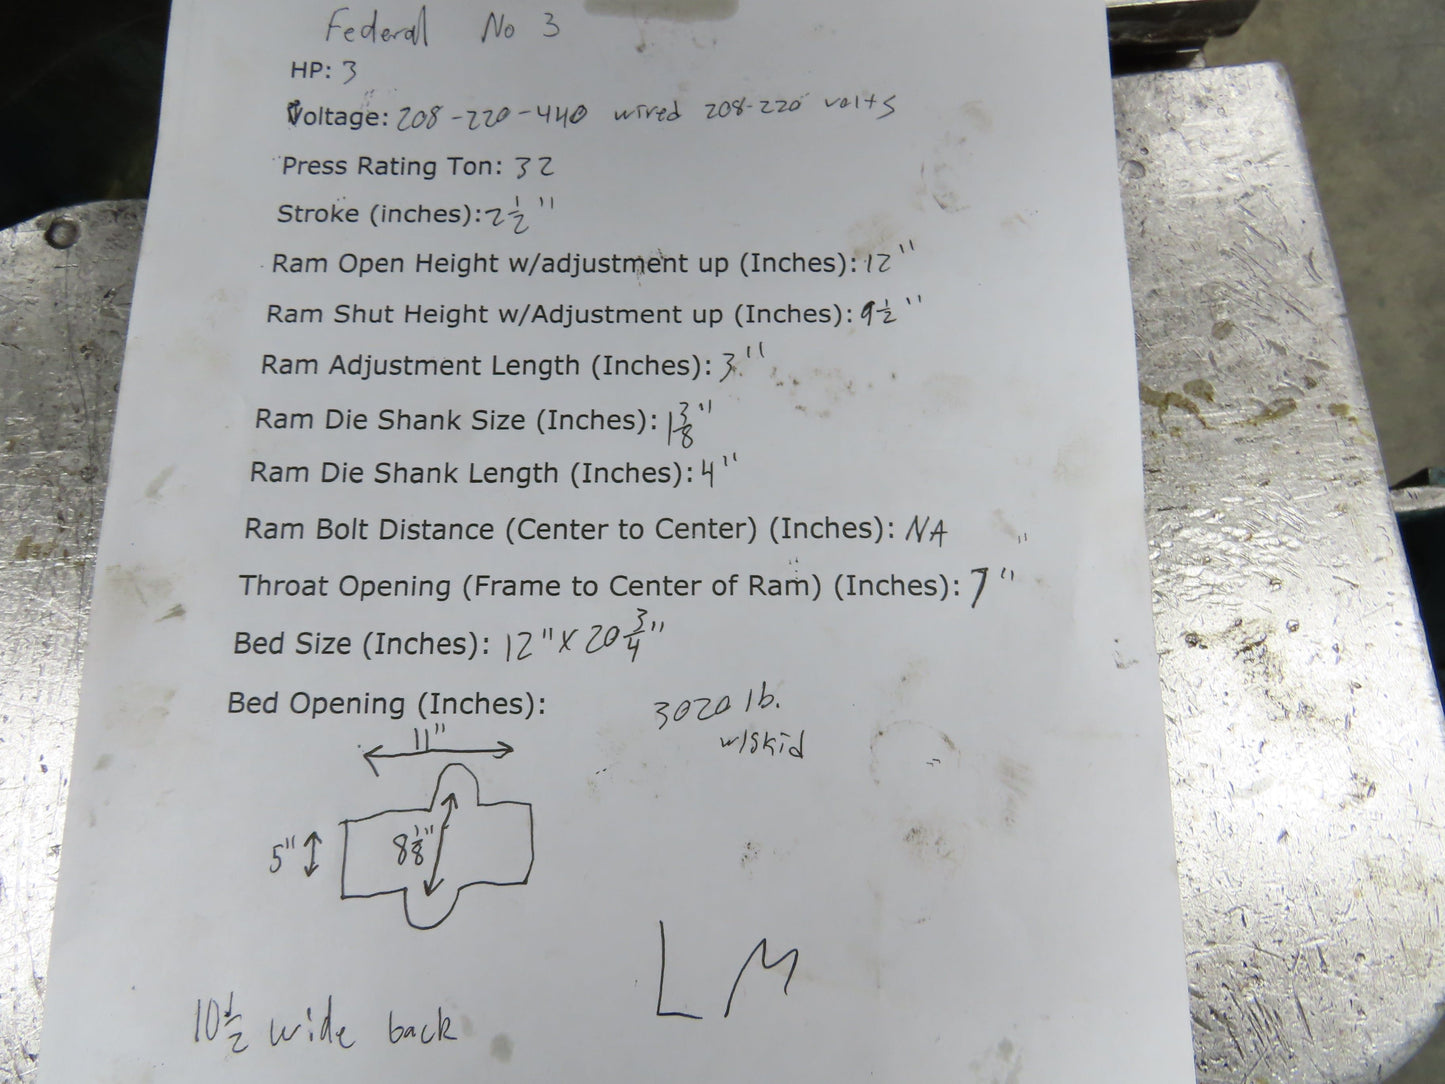 Federal No 3
HP: 3
Voltage: 208-220-440 wired 208-220 volts
Press Rating Ton: 32
Stroke (inches): 2 1/2"
Ram Open Height w/adjustment up (Inches): 12"
Ram Shut Height w/Adjustment up (Inches): 9 1/2"
Ram Adjustment Length (Inches): 3"
Ram Die Shank Size (Inches): 1 3/8"
Ram Die Shank Length (Inches): 4"
Ram Bolt Distance (Center to Center) (Inches): NA "
Throat Opening (Frame to Center of Ram) (Inches): 7"
Bed Size (Inches): 12" X 20 3/4"
Bed Opening (Inches):
3020 lb.
w/skid
11"
5"
8 1/8"
LM
10 1/2 wide back